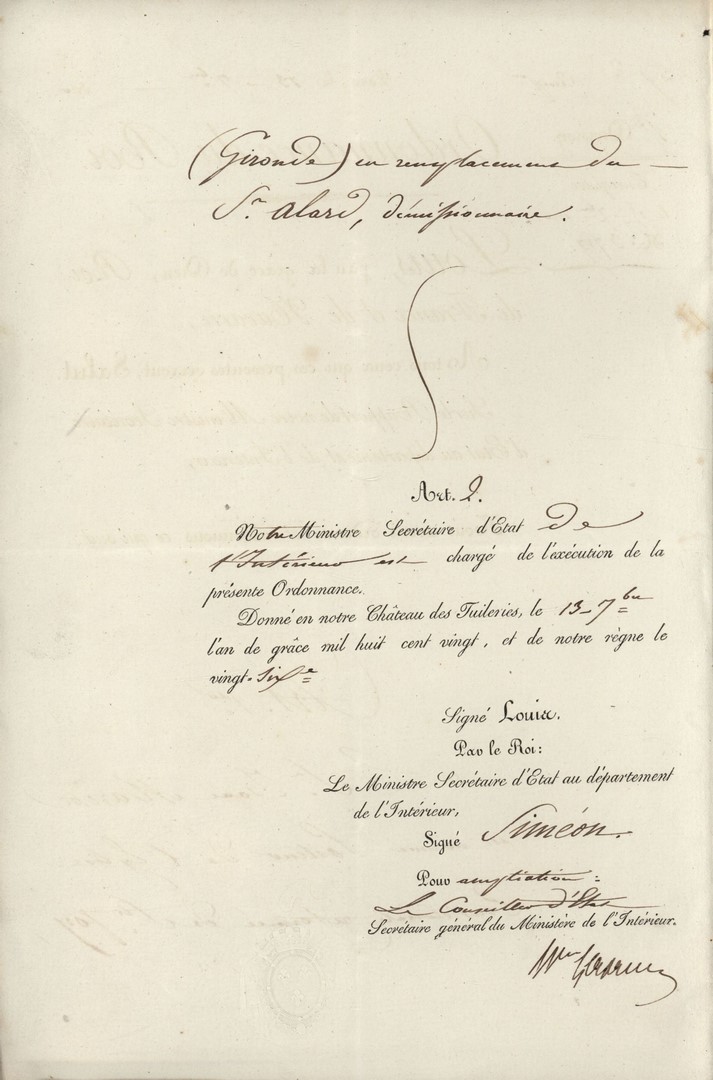 (Gironde) en remplacement du —
Sr. Alard, démissionnaire.
Art. 2.
Notre Ministre Secrétaire d'Etat De
l'Intérieur est chargé de l'exécution de la
présente Ordonnance.
Donné en notre Château des Tuileries, le 13 7bre
l'an de grâce mil huit cent vingt, et de notre règne le
vingt-Sixe
Signé Louis.
Par le Roi:
Le Ministre Secrétaire d'Etat au département
de l'Intérieur,
Signé Siméon.
Pour ampliation:
Le Conseiller d'Etat
Secrétaire général du Ministère de l'Intérieur.